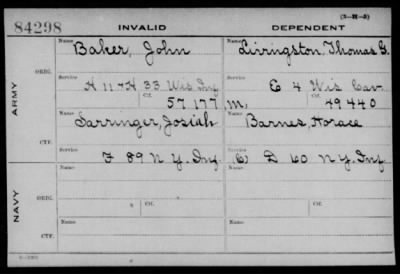 (3-H-3)
84298 INVALID DEPENDENT
Name Baker, John Name Livingston, Thomas G.
ARMY
ORIG.
Service H 11 + H 33 Wis Inf Service E 4 Wis Cav.
Ctf. 57 177 Ctf. 49 440
Name Josiah Name Barnes, Horace
CTF.
Service F 89 N. Y. Inf Service D 60 N.Y. Inf
NAVY
Name Name
ORIG.
Service Service
Ctf. Ctf.
Name Name
CTF.